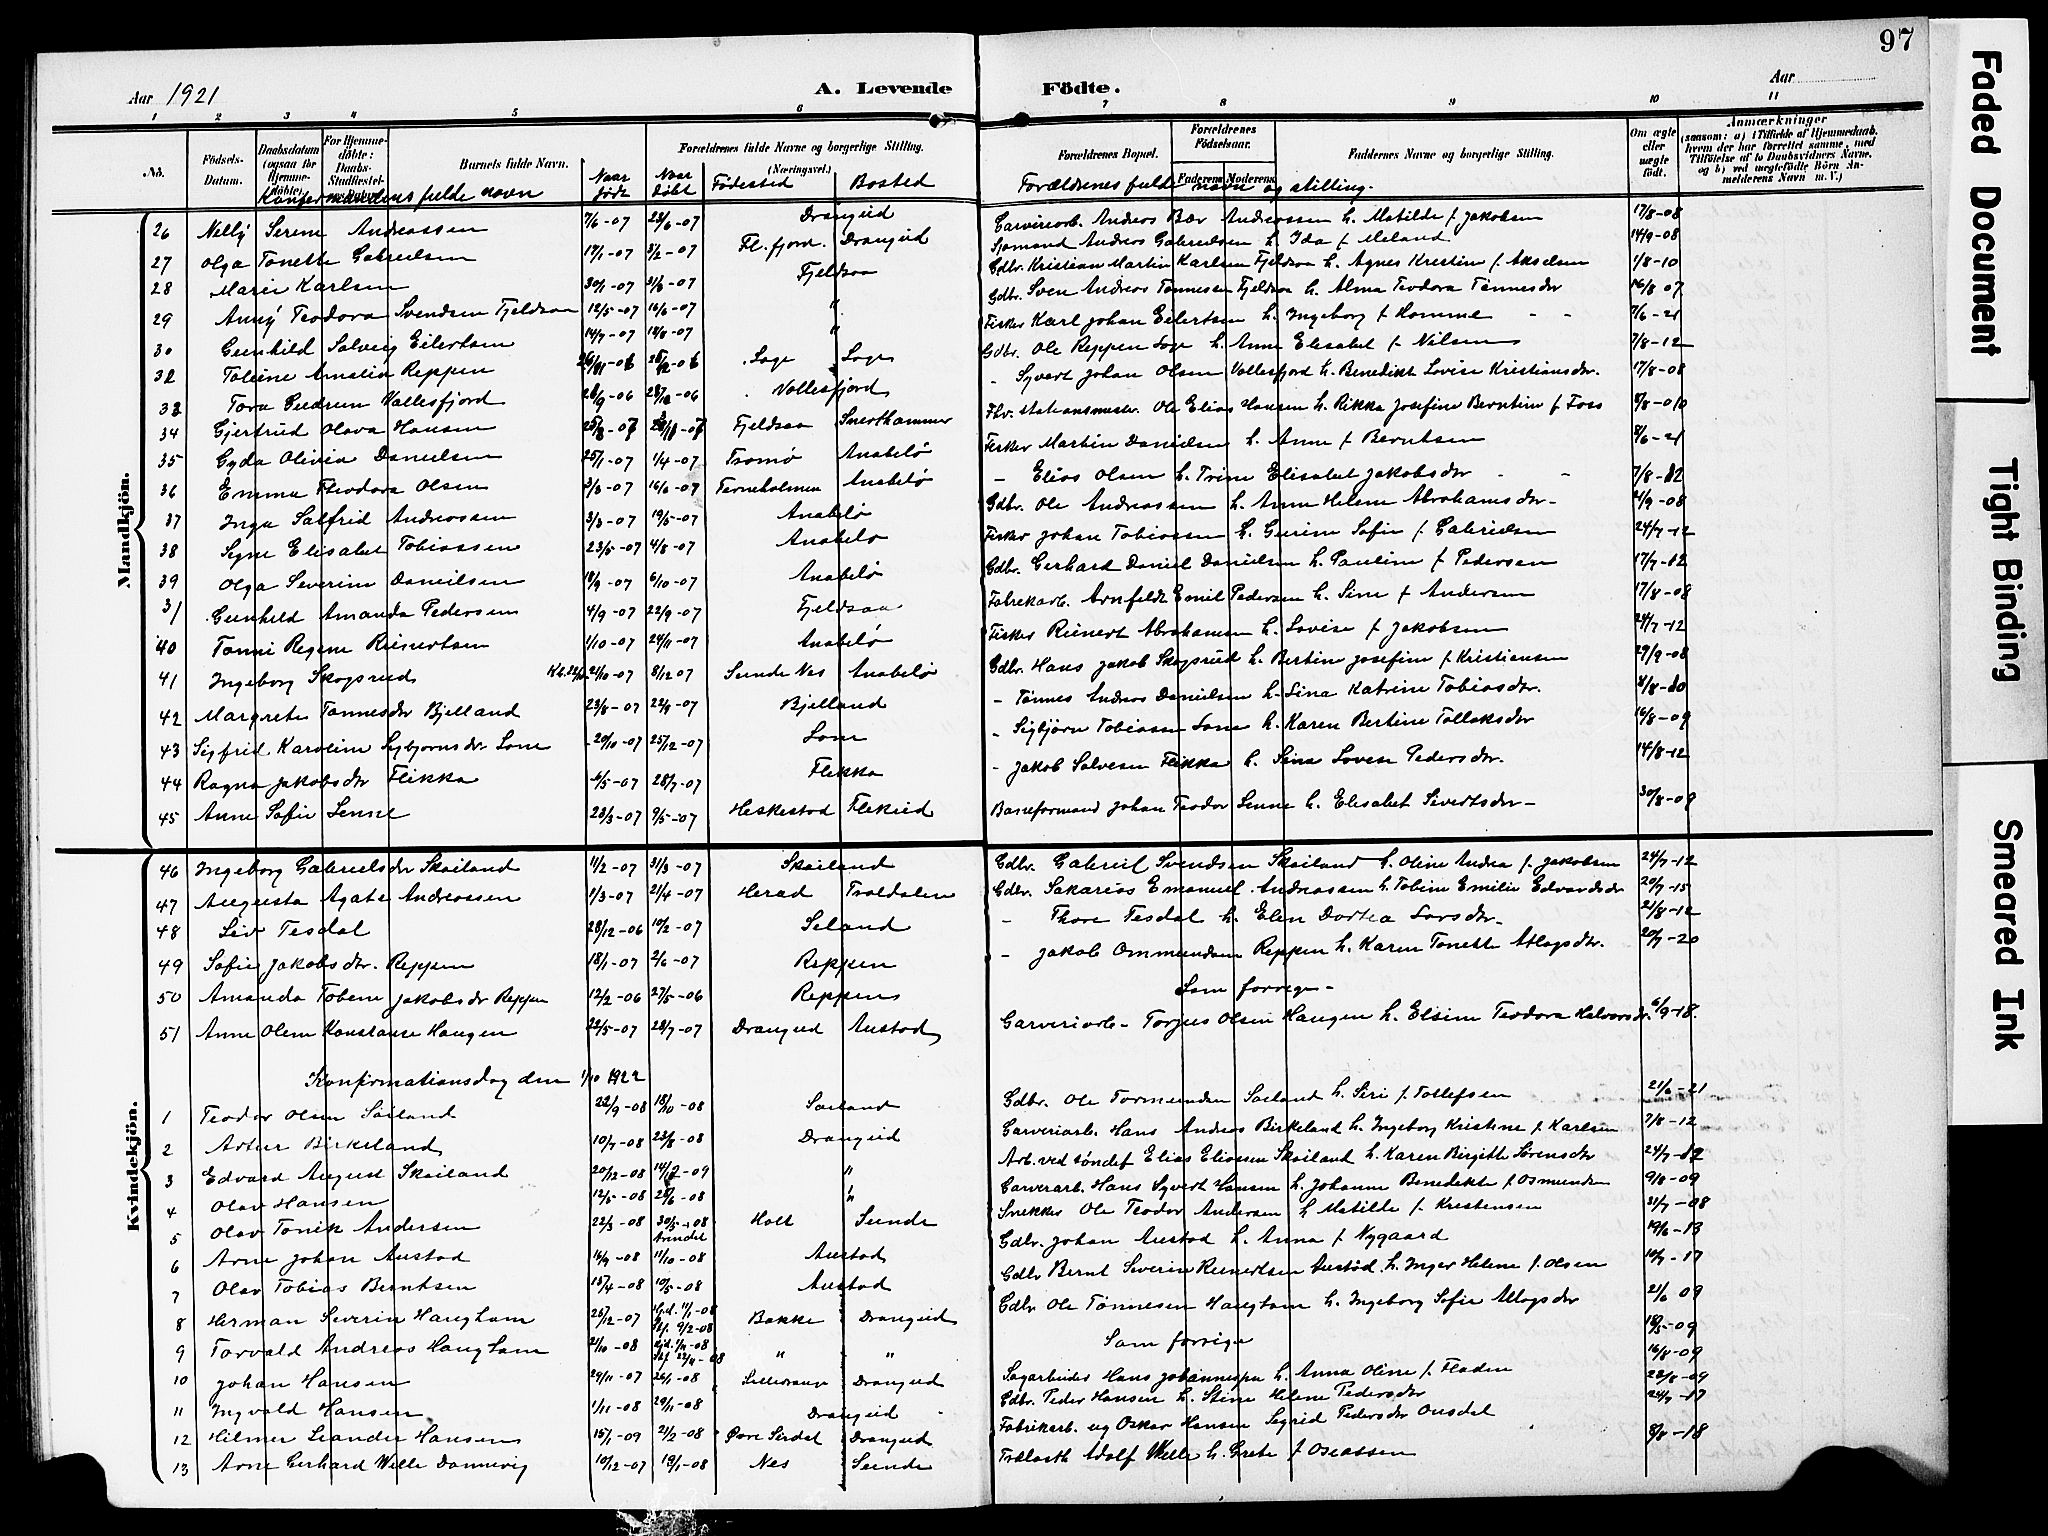 97
Aar 1921
A. Levende Födte.
Aar
1 2 3 4 5 6 7 8 9 10 11
No.
Födsels-Datum.
Daabsdatum (ogsaa for Hjemmedöbte).
For Hjemmedöbte: Daabs-Stadfæstelses-Datum.
Barnets fulde Navn.
Forældrenes fulde Navne og borgerlige Stilling. (Næringsvei.)
Forældrenes Bopæl.
Forældrenes Födselsaar.
Faderens Moderens
Faddernes Navne og borgerlige Stilling.
Om ægte eller uægte födt.
Anmærkninger (saasom: a) i Tilfælde af Hjemmedaab, hvem der har forrettet samme, med Tilföielse af to Daabsvidners Navne, og b) ved uægtefödte Börn Anmelderens Navn m. V.)
Konfirmandens fulde navn
Naar föde
Naar döbt
Födested
Bosted
Forældrenes fulde navn og stilling.
Mandkjön.
26 Nelly Serene Andreassen 7/6-07 23/6-07 Drangeid Garveriarb. Andreas Bær Andreassen h. Matilde f. Jakobsen 17/8-08
27 Olga Tonette Gabrielsen 17/1-07 3/2-07 Fl.fjord. Drangeid Sjömand Andreas Gabrielsen h. Ida f. Meland 14/9-08
28 Marie Karlsen 30/1-07 31/3-07 Fjeldsaa Gdbr. Kristian Martin Karlsen Fjeldsaa h. Agnes Kristine f. Akselsen 1/8-10
29 Anny Teodora Svendsen Fjeldsaa 12/5-07 16/6-07 " Gdbr. Sven Andreas Tønnessen Fjeldsaa h. Alma Teodora Tønnesdtr 16/8 07
30 Gunhild Solveig Eilertsen 14/7-07 18/8-07 " Fisker Karl Johan Eilertsen h. Ingeborg f Homme - - 7/6-21
32 Toline Amalia Reppen 26/11-06 26/12-06 Loge Loge Gdbr. Ole Reppen Loge h. Anne Elisabet f Nilsen 7/8-12
33 Tora Gudrun Vallesfjord 28/9-06 28/12-06 Vollesfjord - Syvert Johan Olsen Vollesfjord h. Benedikt Lovise Kristiansdtr. 17/8-08
34 Gjertrud Olava Hansen Fjeldsaa Snerthammer Fbr. stationsmester Ole Elias Hansen h. Rikka Josefine Berntine f Foss
35 Gyda Olivia Danielsen 25/1-07 1/4-07 Tromø Anabelø Fisker Martin Danielsen h. Anne f Berntsen 8/6-21
36 Emma Theodora Olsen 3/3-07 16/6-07 Terneholmen Anabelø - Elias Olsen h. Trine Elisabet Jakobsdtr - - 7/8-12
37 Inga Salfrid Andreassen 3/3-07 19/5-07 Anabelø Gdbr. Ole Andreassen h. Anne Helene Abrahamsdtr- 4/9-08
38 Signe Elisabet Tobiassen 23/5-07 4/8-07 Anabelø Fisker Johan Tobiassen h. Gurine Sofie f Gabrielsen 24/7-12
39 Olga Severine Danielsen 18/9-07 6/10-07 Anabelø Gdbr. Gerhard Daniel Danielsen h. Pauline f Pedersen 17/7-12
31 Gunhild Amanda Pedersen 4/9-07 22/9-07 Fjeldsaa Fabrikarb. Arnfeldt Emil Pedersen h. Sine f Andersen 17/8-08
40 Tonni Regine Reinertsen 1/10-07 24/11-07 Anabelø Fisker Reinert Abrahamsen h. Lovise f Jakobsen 24/7-12
41 Ingeborg Skogsrud 21/10-07 8/12 07 Sunde Nes Anabelø Gdbr. Hans Jakob Skogsrud h. Bertine Josefine f Kristiansen 29/9-08
42 Margrete Tønnesdtr Bjelland 23/8-07 22/9-07 Bjelland - Tønnes Andreas Danielsen h. Lina Katrine Tobiasdtr.
43 Sigfrid Karoline Sigbjørnsdtr. Lone 20/10-07 25/12-07 Lone - Sigbjørn Tobiassen Lone h. Karen Bertine Tollaksdtr 16/8-09
44 Ragna Jakobsdtr Flikka 6/5-07 28/7-07 Flekka - Jakob Salvesen Flikka h. Sina Lovise Pedersdtr. 14/8-12
45 Anne Sofie Lenne 23/3-07 9/5-07 Heskestad Flekeid Baneformand Johan Teodor Lenne h. Elisabet Sivertsdtr-
Kvindekjön.
46 Ingeborg Gabrielsdtr Skailand 11/2-07 31/3-07 Skailand Gdbr. Gabriel Svendsen Skailand h. Oline Andrea f. Jakobsen 24/7-12
47 Augusta Agate Andreassen 1/3-07 21/4-07 Herad Troldalen Gdbr. Sakarias Emanuel Andreassen h. Tobine Emilie Edvardsdtr 20/7-15
48 Liv Tesdal 28/12-06 10/2-07 Seland - Thore Tesdal h. Elen Dortea Larsdtr- 21/8-12
49 Sofie Jakobsdtr. Reppen 18/1-07 2/6-07 Reppen - Jakob Ommundsen Reppen h. Karen Tonette Atlagsdtr. 20/7-20
50 Amanda Tobine Jakobsdtr Reppen 12/2-06 27/5-06 Reppen Som forrige-
51 Anne Oline Konstanse Haugen 22/5-07 28/7-07 Drangeid Austad Garveriarb- Torjus Olsen Haugen h. Elsine Teodora Halvorsdtr. 6/9-18.
Konfirmationsdag den 1/10 1922
1 Teodor Olsen Søiland 22/9-08 18/10-08 Søiland Gdbr. Ole Tormundsen Søiland h. Siri f. Tollefsen 21/6-21
2 Artur Birkeland 10/7-08 23/8-08 Drangeid Garveriarb. Hans Andreas Birkeland h. Ingeborg Kristine f Karlsen 7/8-12
3 Edvard August Skailand 20/12-08 " Arb. ved tøndef Elias Eliassen Skailand h. Karen Birgitte Sørensdtr 24/7-12
4 Olav Hansen 12/5-08 28/6-08 " Garverarb. Hans Syvert Hansen h. Johanne Benedikte f Osmundsen 9/8-09
5 Olav Tonik Andersen 22/3-08 30/5-08 Arendal Holt Sunde Snekker Ole Teodor Andersen h Matilde f. Kristensen 31/7-08
6 Arne Johan Austad 16/9-08 11/10-08 Austad Gdbr. Johan Austad h. Anna f Nygaard 19/6-13
7 Olav Tobias Berntsen 15/4-08 10/5-08 Austad Gdbr Bernt Severin Reinertsen Austad h. Inger Helene f. Olsen 10/7-17
8 Herman Severin Haughom 26/12-07 Hjd. 1/1-08 Stf. 9/2-08 Bakke Drangeid Gdbr Ole Tønnesen Haughom h. Ingeborg Sofie Atlagsdtr 21/6 09
9 Torvald Andreas Haughom 21/10-08 " " Som forrige
10 Johan Hansen 29/11-07 26/1-08 Drangeid Sagarbeider Hans Johannesen h. Anna Oline f. Fladen 16/8-09
11 Ingvald Hansen 1/11-08 29/11-08 Drangeid Gdbr. Peder Hansen h. Stine Helene Pedersdtr
12 Hilmer Leander Hansen 15/1-09 21/2-08 Øvre Sirdal Drangeid Fabrikarb. ug Oskar Hansen Sigrid Pedersdtr Ousdal 24/7-17
13 Arne Gerhard Welle Dannevig 10/12-07 19/1-08 Nes Sunde Adolf Welle h. Grete f Oseassen 8/8-18
Faded Document
Tight Binding
Smeared Ink